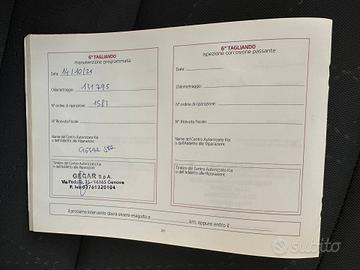 6° TAGLIANDO
manutenzione programmata
Data 14/10/21
Chilometraggio 131795
N° ordine di riparazione 1583
N° Ricevuta Fiscale
Nome del Centro Autorizzato Kia
o dell'Addetto alle Riparazioni
GEGAR SPA
Timbro del Centro Autorizzato Kia
o dell'Addetto alle Riparazioni
GEGAR S.p.A.
16165 Genova
P. Iva 03761320104
6° TAGLIANDO
ispezione corrosione passante
Data
Chilometraggio
N° ordine di riparazione
N° Ricevuta Fiscale
Nome del Centro Autorizzato Kia
o dell'Addetto alle Riparazioni
Timbro del Centro Autorizzato Kia
o dell'Addetto alle Riparazioni
Il prossimo intervento dovrà essere eseguito a km, oppure entro il
subito